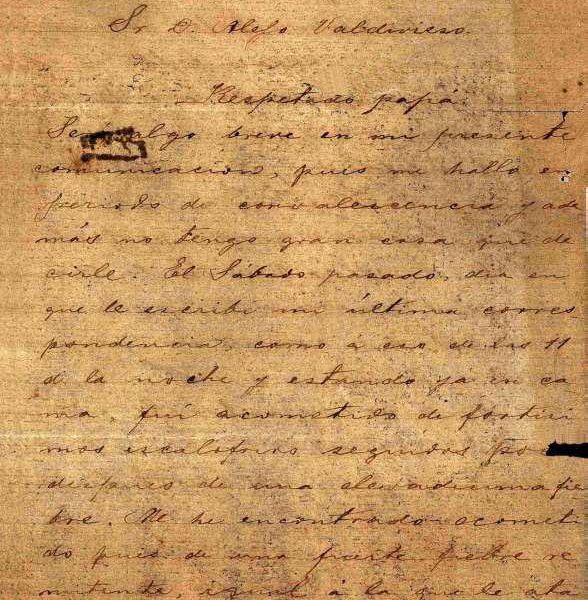 Sr D. Alejo Valdivieso.
Respetado papá:
Seré algo breve en mi presente
comunicacion, pues me hallo en
período de convalescencia y ade
más no tengo gran cosa que de
cirle. El Sábado pasado, dia en
que le escribí mi última corres
pondencia, como á eso de las 11
de la noche y estando ya en ca
ma, fuí acometido de fortísi
mos escalofrios seguidos po
despues de una elevadísima fie
bre. Me he encontrado acometi
do pues de una fuerte fiebre re
mitente, igual á la que le ata